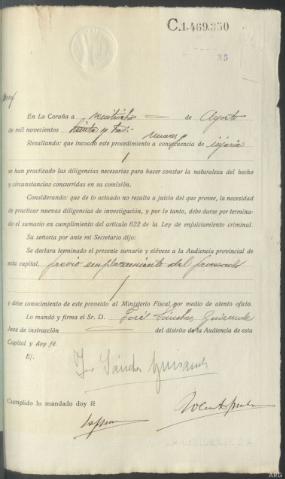 C.1.469.350
35
En La Coruña a veintiocho de Agosto
de mil novecientos treinta y tres
Resultando: que incoado este procedimiento a consecuencia de injuria
se han practicado las diligencias necesarias para hacer constar la naturaleza del hecho
y circunstancias concurridas en su comisión.
Considerando: que de lo actuado no resulta a juicio del que provee, la necesidad
de practicar nuevas diligencias de investigación, y por lo tanto, debe darse por termina-
do el sumario en cumplimiento del artículo 622 de la Ley de enjuiciamiento criminal.
Su señoría por ante mi Secretario dijo:
Se declara terminado el presente sumario y elévese a la Audiencia provincial de
esta capital, previo emplazamiento del procesado
y dése conocimiento de este proveído al Ministerio Fiscal por medio de atento oficio.
Lo mandó y firma el Sr. D. José Sánchez
Juez de instrucción del distrito de la Audiencia de esta
Capital y doy fé.
E/.
José Sánchez
Cumplido lo mandado doy fé